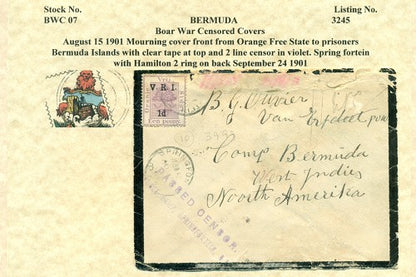 Stock No.
BWC 07
BERMUDA
Listing No.
3245
Boar War Censored Covers
August 15 1901 Mourning cover front from Orange Free State to prisoners
Bermuda Islands with clear tape at top and 2 line censor in violet. Spring fortein
with Hamilton 2 ring on back September 24 1901
V.R.I.
1d
B. G. Olivier
Van
Camp Bermuda
West Indies
Noorth Amerika
PASSED CENSOR.